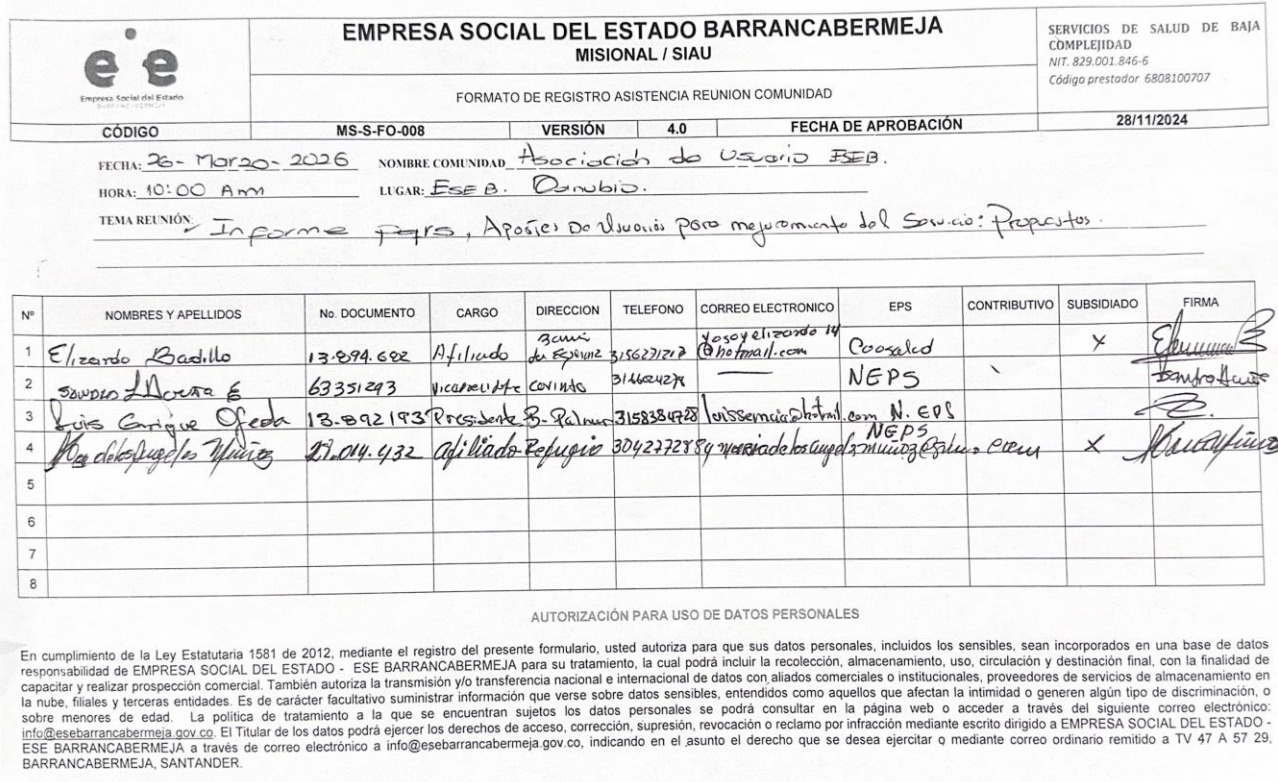 EMPRESA SOCIAL DEL ESTADO BARRANCABERMEJA
MISIONAL / SIAU
FORMATO DE REGISTRO ASISTENCIA REUNION COMUNIDAD
SERVICIOS DE SALUD DE BAJA
COMPLEJIDAD
NIT. 829.001.846-6
Código prestador 6808100707
ese
Empresa Social del Estado
BARRANCABERMEJA
CÓDIGO MS-S-FO-008 VERSIÓN 4.0 FECHA DE APROBACIÓN 28/11/2024
FECHA: 26-Marzo-2026 NOMBRE COMUNIDAD Asociación de Usuario ESEB.
HORA: 10:00 Am LUGAR: ESE B. Danubio.
TEMA REUNIÓN: Informe pqrs, Aportes De Usuarios para mejoramiento del Servicio: Propuestas.
Nº NOMBRES Y APELLIDOS No. DOCUMENTO CARGO DIRECCION TELEFONO CORREO ELECTRONICO EPS CONTRIBUTIVO SUBSIDIADO FIRMA
1 Elizardo Badillo 13.894.682 Afiliado yosoyelizardo14@hotmail.com Coosalud X
2 63351293 NEPS
3 Luis Enrique Ojeda 13.892193 Presidente B. Palmar 3158384728 N. EPS
4 Ma de los Angeles Muñoz afiliado Refugio NEPS X
5
6
7
8
AUTORIZACIÓN PARA USO DE DATOS PERSONALES
En cumplimiento de la Ley Estatutaria 1581 de 2012, mediante el registro del presente formulario, usted autoriza para que sus datos personales, incluidos los sensibles, sean incorporados en una base de datos
responsabilidad de EMPRESA SOCIAL DEL ESTADO - ESE BARRANCABERMEJA para su tratamiento, la cual podrá incluir la recolección, almacenamiento, uso, circulación y destinación final, con la finalidad de
capacitar y realizar prospección comercial. También autoriza la transmisión y/o transferencia nacional e internacional de datos con aliados comerciales o institucionales, proveedores de servicios de almacenamiento en
la nube, filiales y terceras entidades. Es de carácter facultativo suministrar información que verse sobre datos sensibles, entendidos como aquellos que afectan la intimidad o generen algún tipo de discriminación, o
sobre menores de edad. La politica de tratamiento a la que se encuentran sujetos los datos personales se podrá consultar en la página web o acceder a través del siguiente correo electrónico:
info@esebarrancabermeja.gov.co. El Titular de los datos podrá ejercer los derechos de acceso, corrección, supresión, revocación o reclamo por infracción mediante escrito dirigido a EMPRESA SOCIAL DEL ESTADO -
ESE BARRANCABERMEJA a través de correo electrónico a info@esebarrancabermeja.gov.co, indicando en el asunto el derecho que se desea ejercitar o mediante correo ordinario remitido a TV 47 A 57 29,
BARRANCABERMEJA, SANTANDER.